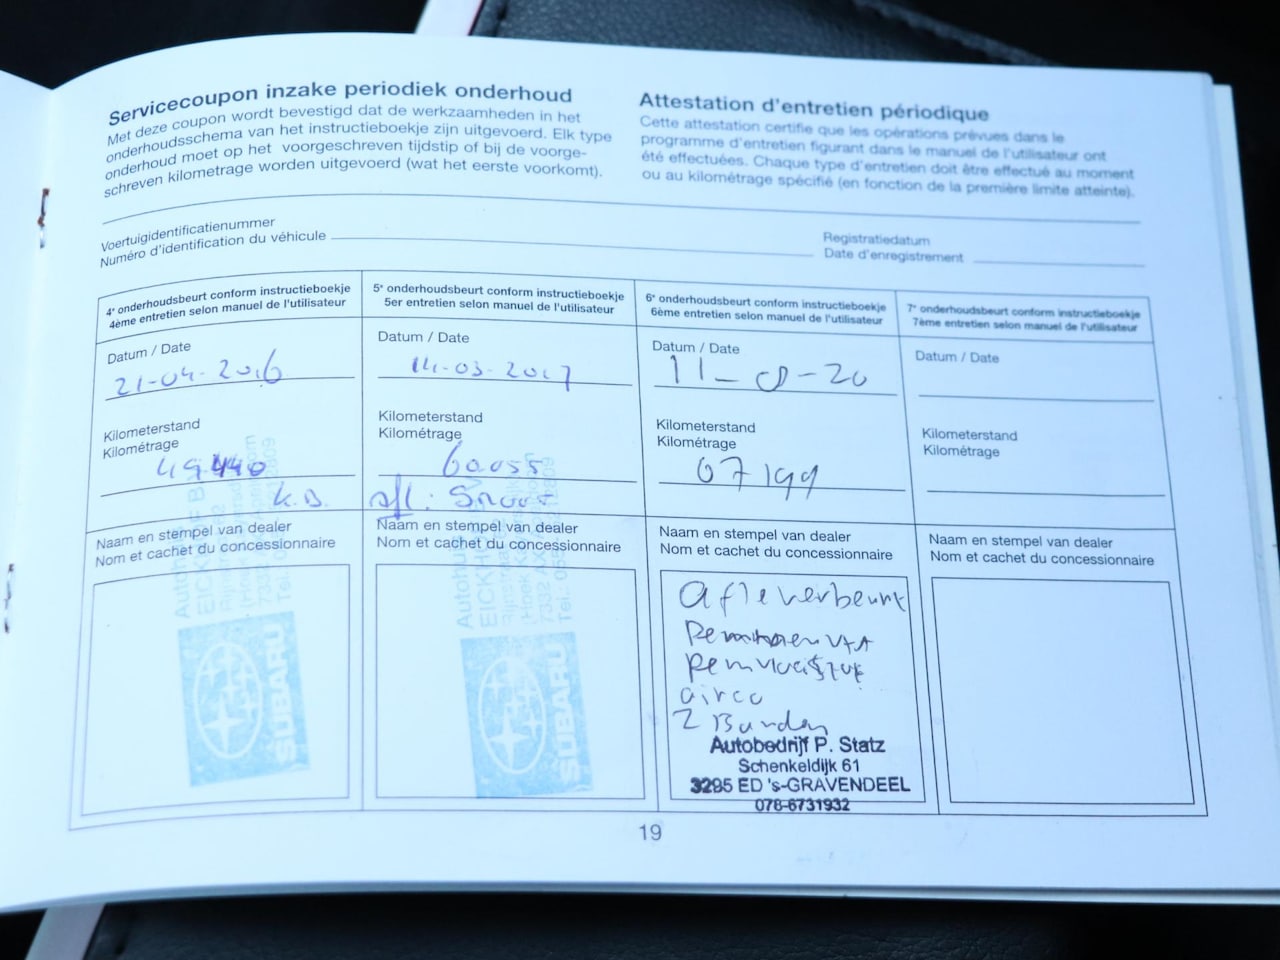 Servicecoupon inzake periodiek onderhoud
Met deze coupon wordt bevestigd dat de werkzaamheden in het
onderhoudsschema van het instructieboekje zijn uitgevoerd. Elk type
onderhoud moet op het voorgeschreven tijdstip of bij de voorge-
schreven kilometrage worden uitgevoerd (wat het eerste voorkomt).
Attestation d'entretien périodique
Cette attestation certifie que les opérations prévues dans le
programme d'entretien figurant dans le manuel de l'utilisateur ont
été effectuées. Chaque type d'entretien doit être effectué au moment
ou au kilométrage spécifié (en fonction de la première limite atteinte).
Voertuigidentificatienummer
Numéro d'identification du véhicule
Registratiedatum
Date d'enregistrement
4e onderhoudsbeurt conform instructieboekje
4ème entretien selon manuel de l'utilisateur
Datum / Date
21-04-2016
Kilometerstand
Kilométrage
49.440
K.B.
Naam en stempel van dealer
Nom et cachet du concessionnaire
SUBARU
5e onderhoudsbeurt conform instructieboekje
5er entretien selon manuel de l'utilisateur
Datum / Date
14-03-2017
Kilometerstand
Kilométrage
60.055
Naam en stempel van dealer
Nom et cachet du concessionnaire
SUBARU
6e onderhoudsbeurt conform instructieboekje
6ème entretien selon manuel de l'utilisateur
Datum / Date
11-8-20
Kilometerstand
Kilométrage
67199
Naam en stempel van dealer
Nom et cachet du concessionnaire
afleverbeurt
Remvloeistof
airco
2 Banden
Autobedrijf P. Statz
Schenkeldijk 61
3295 ED 's-GRAVENDEEL
078-6731932
7e onderhoudsbeurt conform instructieboekje
7ème entretien selon manuel de l'utilisateur
Datum / Date
Kilometerstand
Kilométrage
Naam en stempel van dealer
Nom et cachet du concessionnaire
19